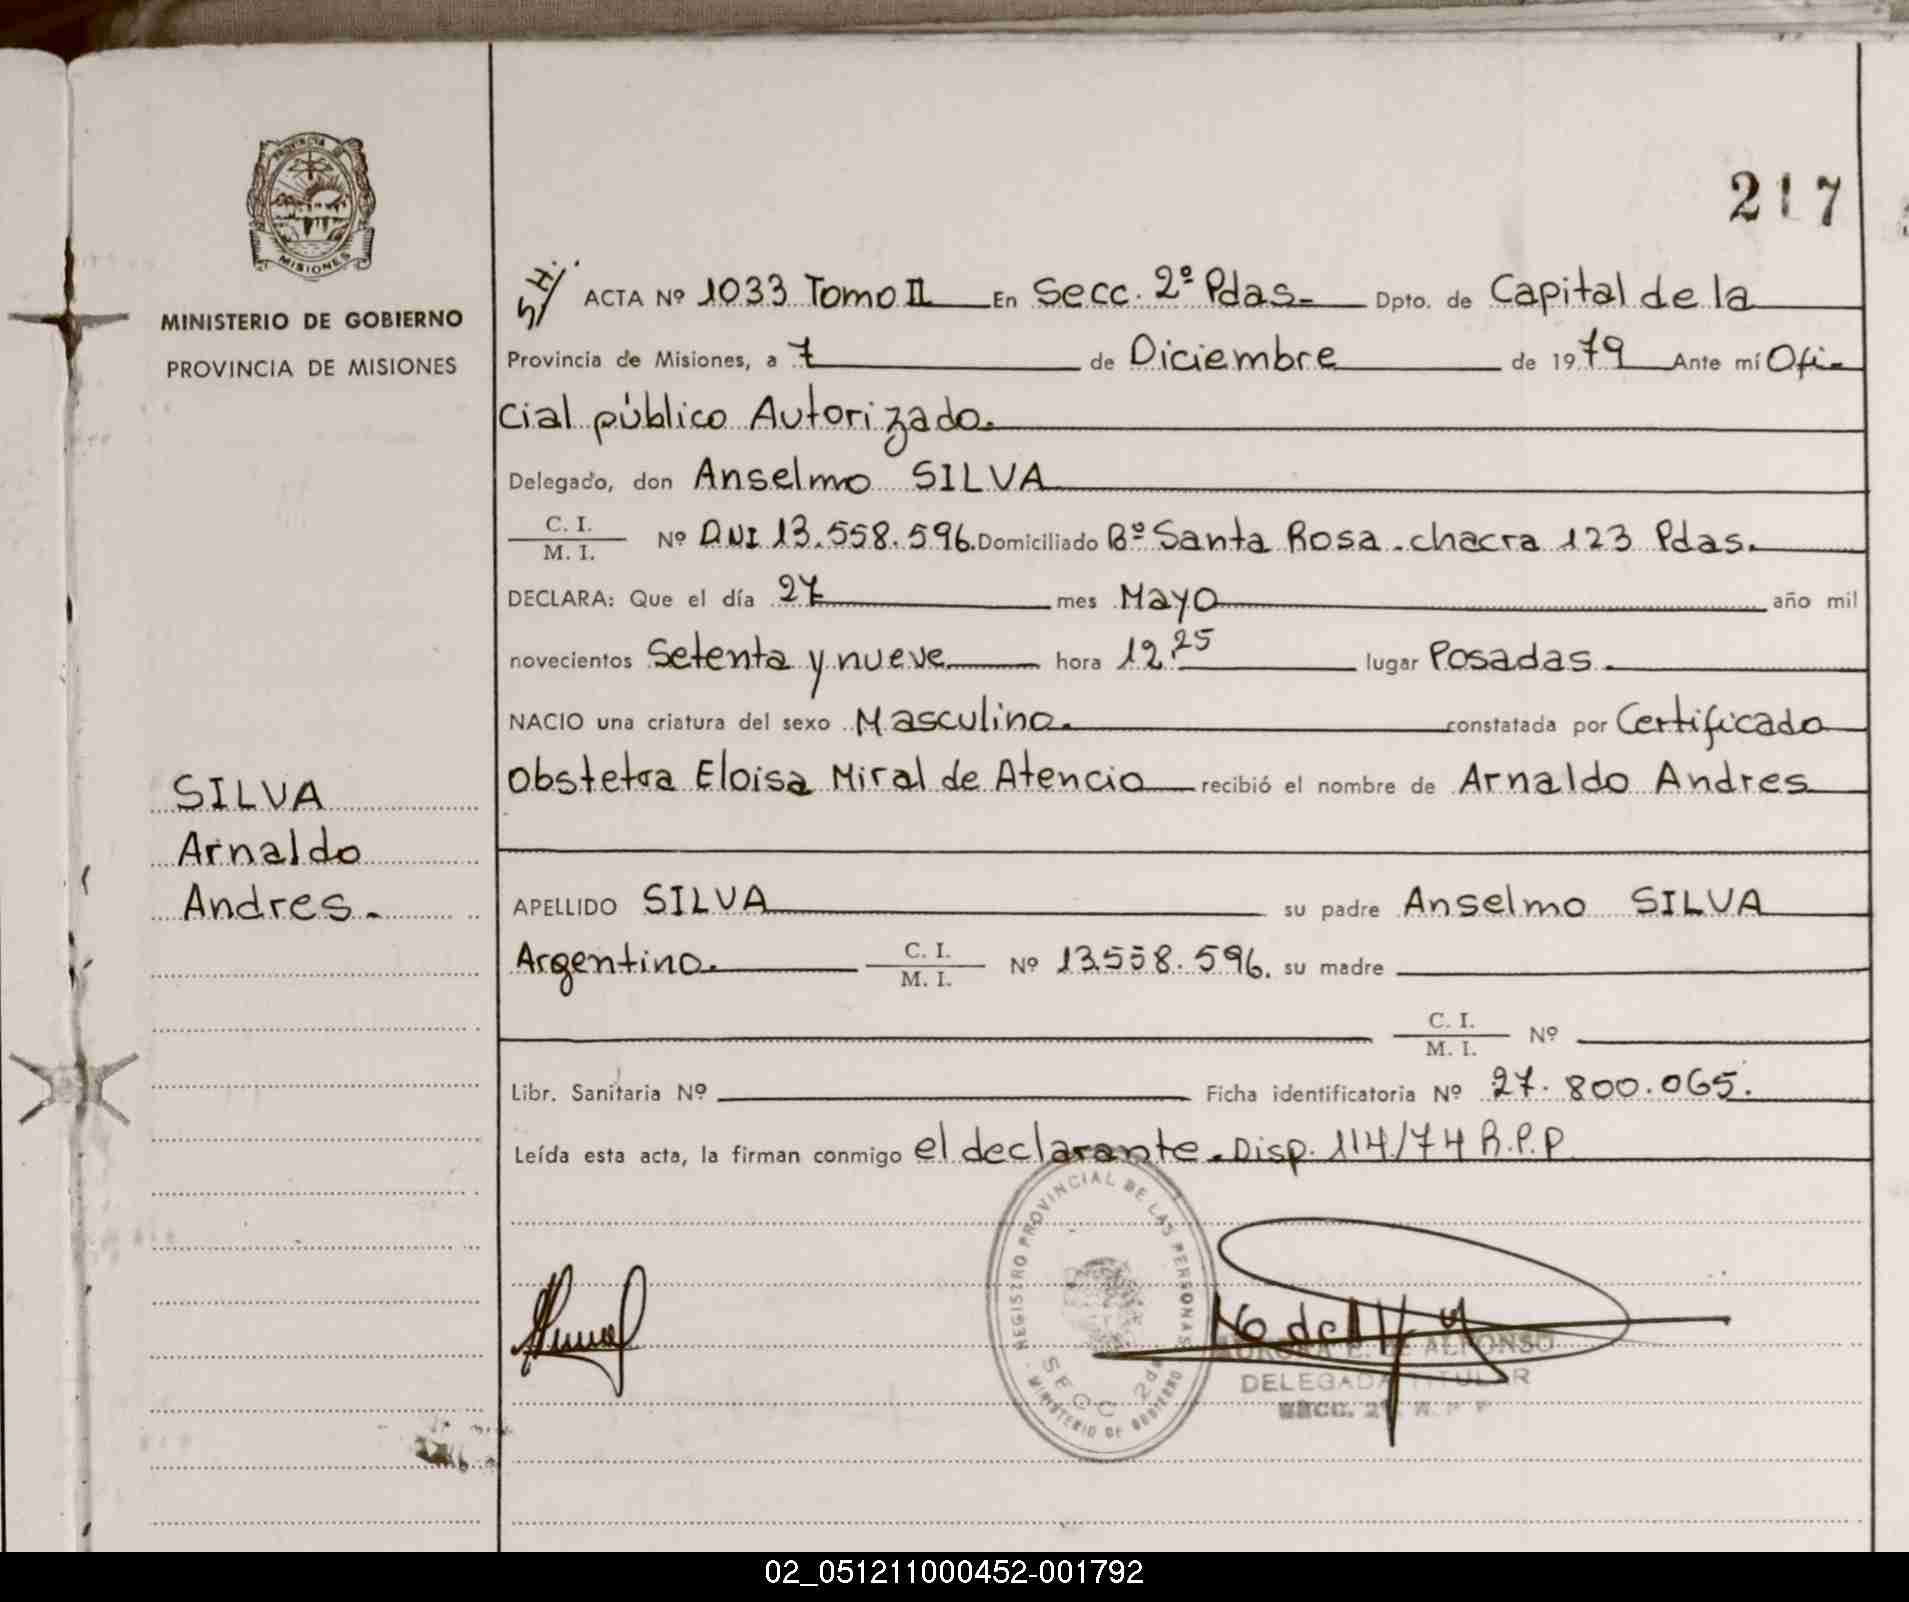 217
PROVINCIA DE
MISIONES
MINISTERIO DE GOBIERNO
PROVINCIA DE MISIONES
SILVA
Arnaldo
Andres.-
S/H/. ACTA Nº 1033 Tomo II En Secc. 2º Pdas.- Dpto. de Capital de la
Provincia de Misiones, a 7 de Diciembre de 1979 Ante mí Ofi-
cial público Autorizado.
Delegado, don Anselmo SILVA
C. I.
M. I. Nº DNI 13.558.596. Domiciliado Bº Santa Rosa - chacra 123 Pdas.
DECLARA: Que el día 27 mes Mayo año mil
novecientos Setenta y nueve hora 12,25 lugar Posadas.
NACIO una criatura del sexo Masculino. constatada por Certificado
Obstetra Eloisa Miral de Atencio recibió el nombre de Arnaldo Andres
APELLIDO SILVA su padre Anselmo SILVA
Argentino. C. I.
M. I. Nº 13.558.596. su madre
C. I.
M. I. Nº
Libr. Sanitaria Nº Ficha identificatoria Nº 27.800.065.
Leída esta acta, la firman conmigo el declarante. Disp. 114/74 R.P.P
REGISTRO PROVINCIAL DE LAS PERSONAS
SECC 2da
MINISTERIO DE GOBIERNO
ALFONSO
DELEGADA TITULAR
SECC. 2ª R. P. P.
02_051211000452-001792